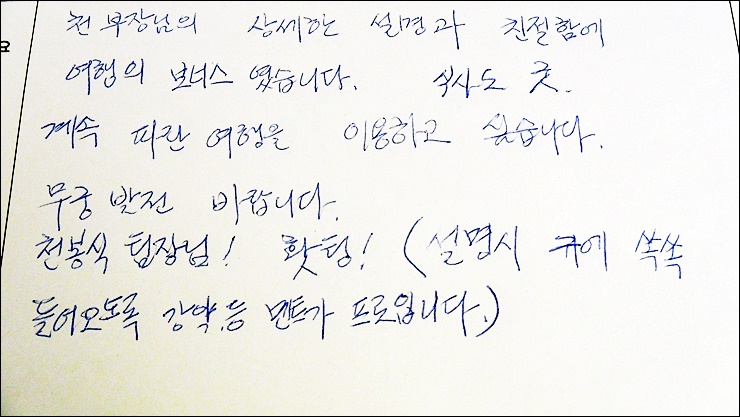 천 부장님의 상세한 설명과 친절함에
요
여행의 보너스 였습니다. 식사도 굿.
계속 파란 여행을 이용하고 싶습니다.
무궁 발전 바랍니다.
천봉식 팀장님! 홧팅! (설명시 귀에 쏙쏙
들어오도록 강약.등 멘트가 프로입니다.)